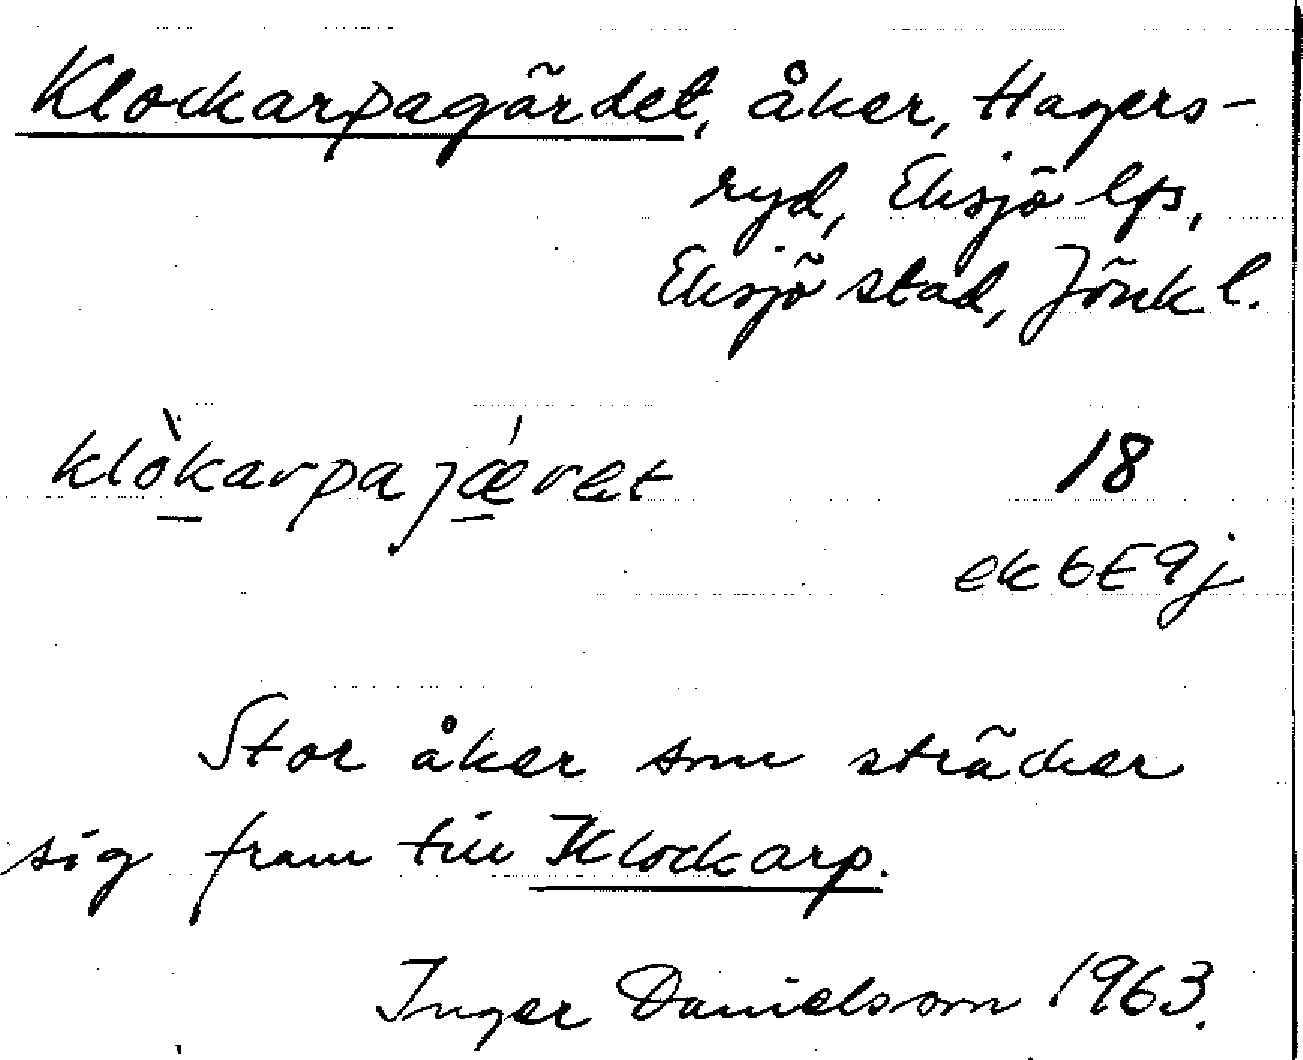 Klockarpagärdet, åker, Hagers-
ryd, Eksjö lfs,
Eksjö stad, Jönk l.
klòkarpajǽret 18
ek 6E9j
Stor åker som sträcker
sig fram till Klockarp.
Inger Danielsson 1963.